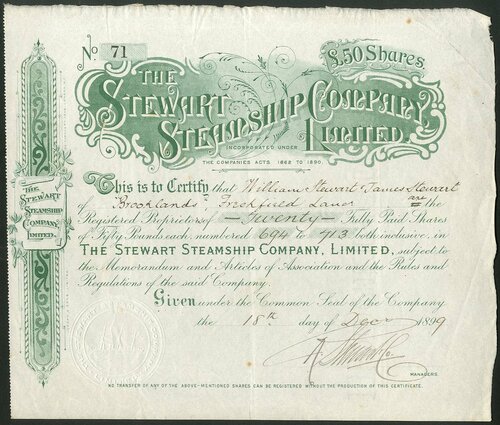 No 71
£50 Shares
THE
STEWART
STEAMSHIP COMPANY
LIMITED.
INCORPORATED UNDER
THE COMPANIES ACTS 1862 TO 1890.
This is to Certify that William Stewart & James Stewart
of Brooklands, Lane are the
Registered Proprietors of — Twenty — Fully Paid Shares
of Fifty Pounds each, numbered 694 to 713 both inclusive, in
THE STEWART STEAMSHIP COMPANY, LIMITED, subject to
the Memorandum and Articles of Association and the Rules and
Regulations of the said Company.
Given under the Common Seal of the Company
the 18th day of Decr 1899
MANAGERS.
NO TRANSFER OF ANY OF THE ABOVE-MENTIONED SHARES CAN BE REGISTERED WITHOUT THE PRODUCTION OF THIS CERTIFICATE.
THE
STEWART
STEAMSHIP
COMPANY
LIMITED.